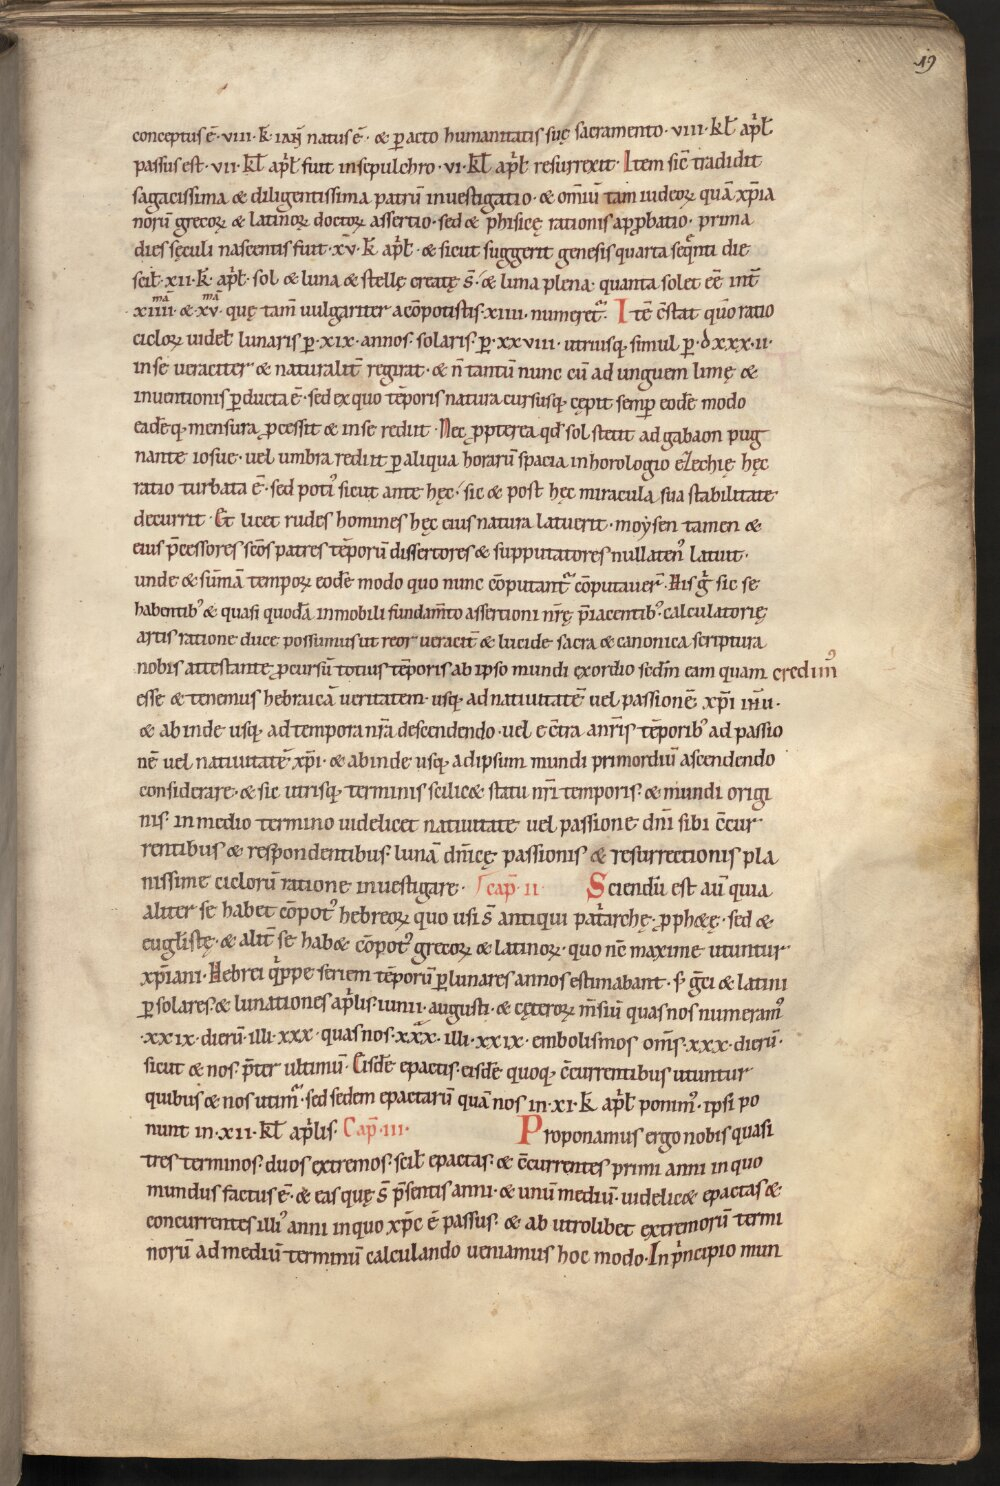 19
conceptus ē· viii· k̄· ianr̄ natus ē· & peracto humanitatis suę sacramento· viii· kƚ apr̄ƚ
passus est· vii· kƚ apr̄ƚ fuit in sepulchro· vi· kƚ apr̄ƚ resurrexit· Item sic̄ tradidit
sagacissima & diligentissima patrū investigatio· & om̄iū tam iudeoꝝ quā xp̄ia
norū grecoꝝ & latinoꝝ doctoꝝ assertio· sed & phisicę rationis apꝓbatio· prima
dies sęculi nascentis fuit· xv· k̄ apr̄ƚ· & sicut suggerit genesis quarta seqn̄ti die
sciƚ· xii· k̄· apr̄ƚ· sol & luna & stellę creatę s̄· & luna plena· quanta solet eē int̄
xiiii^ma· & xv^ma· quę tam̄ vulgariter a cōpotistis· xiiii· numeret᷑· Itē c̄stat quō ratio
cicloꝝ uideƚ lunaris ꝑ· xix· annos· solaris· ꝑ· xxviii· utriusq; simul ꝑ· dxxxii·
in se veraciter & naturalit̄ regirat· & n̄ tantū nunc cū ad unguem limę &
inventionis ꝑducta ē· sed ex quo tēporis natura cursusq; cępit semꝑ eodē modo
eadēq; mensura ꝓcessit & in se rediit· Nec ꝓpterea qđ sol stetit ad gabaon pug
nante iosue· vel umbra rediit ꝑ aliqua horarū spacia in horologio ezechię hęc
ratio turbata ē· sed poti᷒ sicut ante hęc· sic & post hęc miracula sua stabilitate
decurrit· Et licet rudes homines hęc eius natura latuerit· moẏsen tamen &
eius p̄cessores sc̄os patres tēporū dissertores & supputatores nullaten᷒ latuit·
unde & sūmā tempoꝝ eodē modo quo nunc cōputant᷑ cōputaver̄· His g̊ sic se
habentib᷒ & quasi quodā inmobili fundam̄to assertioni nr̄ę p̄iacentib᷒· calculatorię
artis ratione duce possumus ut reor veracit̄ & lucide sacra & canonica scriptura
nobis attestante ꝓcursū totius tēporis ab ipso mundi exordio sedm̄ eam quam credim᷒
esse & tenemus hebraicā veritatem· usq; ad nativitatē vel passionē xp̄i ih̄u·
& ab inde usq; ad tempora nr̄a descendendo· vel e c̄tra a nr̄is tēporib᷒ ad passio
nē vel nativitatē xp̄i· & ab inde usq; ad ipsum mundi primordiū ascendendo
considerare· & sic utrisq; terminis scilic& statu nr̄i temporis· & mundi origi
nis· in medio termino uidelicet nativitate vel passione dn̄i sibi c̄cur
rentibus & respondentibus· lunā dn̄icę passionis & resurrectionis pla
nissime ciclorū ratione investigare· cap̄· ii· Sciendū est aū quia
aliter se habet cōpot᷒ hebreoꝝ quo usi s̄ antiqui pat̄archę· ꝓph&ę· sed &
euglistę· & alit̄ se hab& cōpot᷒ grecoꝝ & latinoꝝ· quo nc̄ maxime utuntur
xp̄iani· Hebrei q̇ppe seriem tēporū ꝑ lunares annos estimabant· s; g̊ci & latini
ꝑ solares· & lunationes apr̄lis· iunii· augusti· & cęteroꝝ m̄siū quas nos numeram᷒
·xxix· dierū· illi· xxx· quas nos· xxx· illi· xxix· embolismos om̄s· xxx· dierū·
sicut & nos p̄ter ultimū· Eisdē epactis· eisdē quoq; c̄currentibus utuntur
quibus & nos utim᷒· sed sedem epactarū quā nos in· xi· k̄ apr̄ƚ ponim᷒· ipsi po
nunt in· xii· kƚ apr̄lis· Cap̄· iii· Proponamus ergo nobis quasi
tres terminos· duos extremos· sciƚ epactas· & c̄currentes primi anni in quo
mundus factus ē· & eas quę s̄ p̄sentis anni· & unū mediū· uidelic& epactas &
concurrentes illi᷒ anni in quo xp̄c ē passus· & ab utrolibet extremorū termi
norū ad mediū terminū calculando veniamus hoc modo· In ṗncipio mun